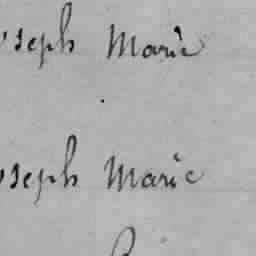 oseph Marie
oseph Marie